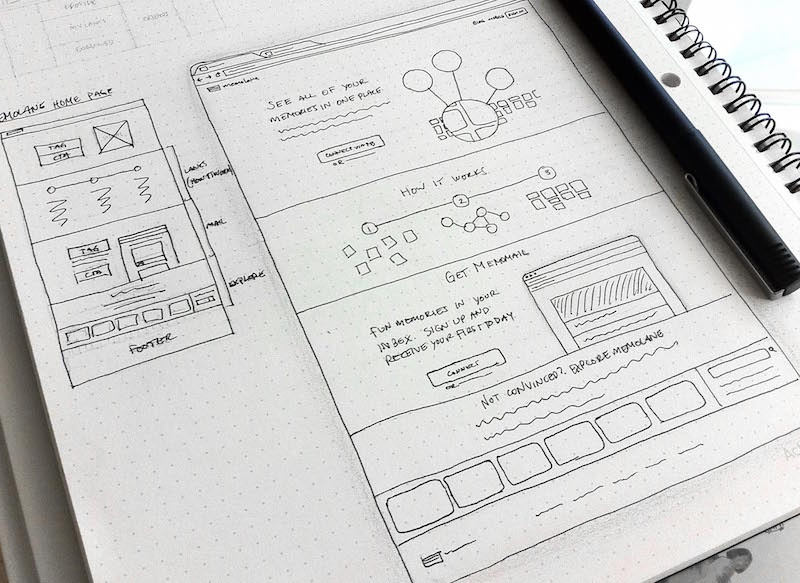 MY LANES
MEMOLANE HOME PAGE
TAG
CTA
LANES
(HOW IT WORKS)
TAG
CTA
MAIL
EXPLORE
FOOTER
memolane
SEE ALL OF YOUR
MEMORIES IN ONE PLACE
OR
HOW IT WORKS
1
2
3
GET MEMOMAIL
FUN MEMORIES IN YOUR
INBEX. SIGN UP AND
RECEIVE YOUR FIRST TODAY.
CONNECT
OR
NOT CONVINCED? EXPLORE MEMOLANE